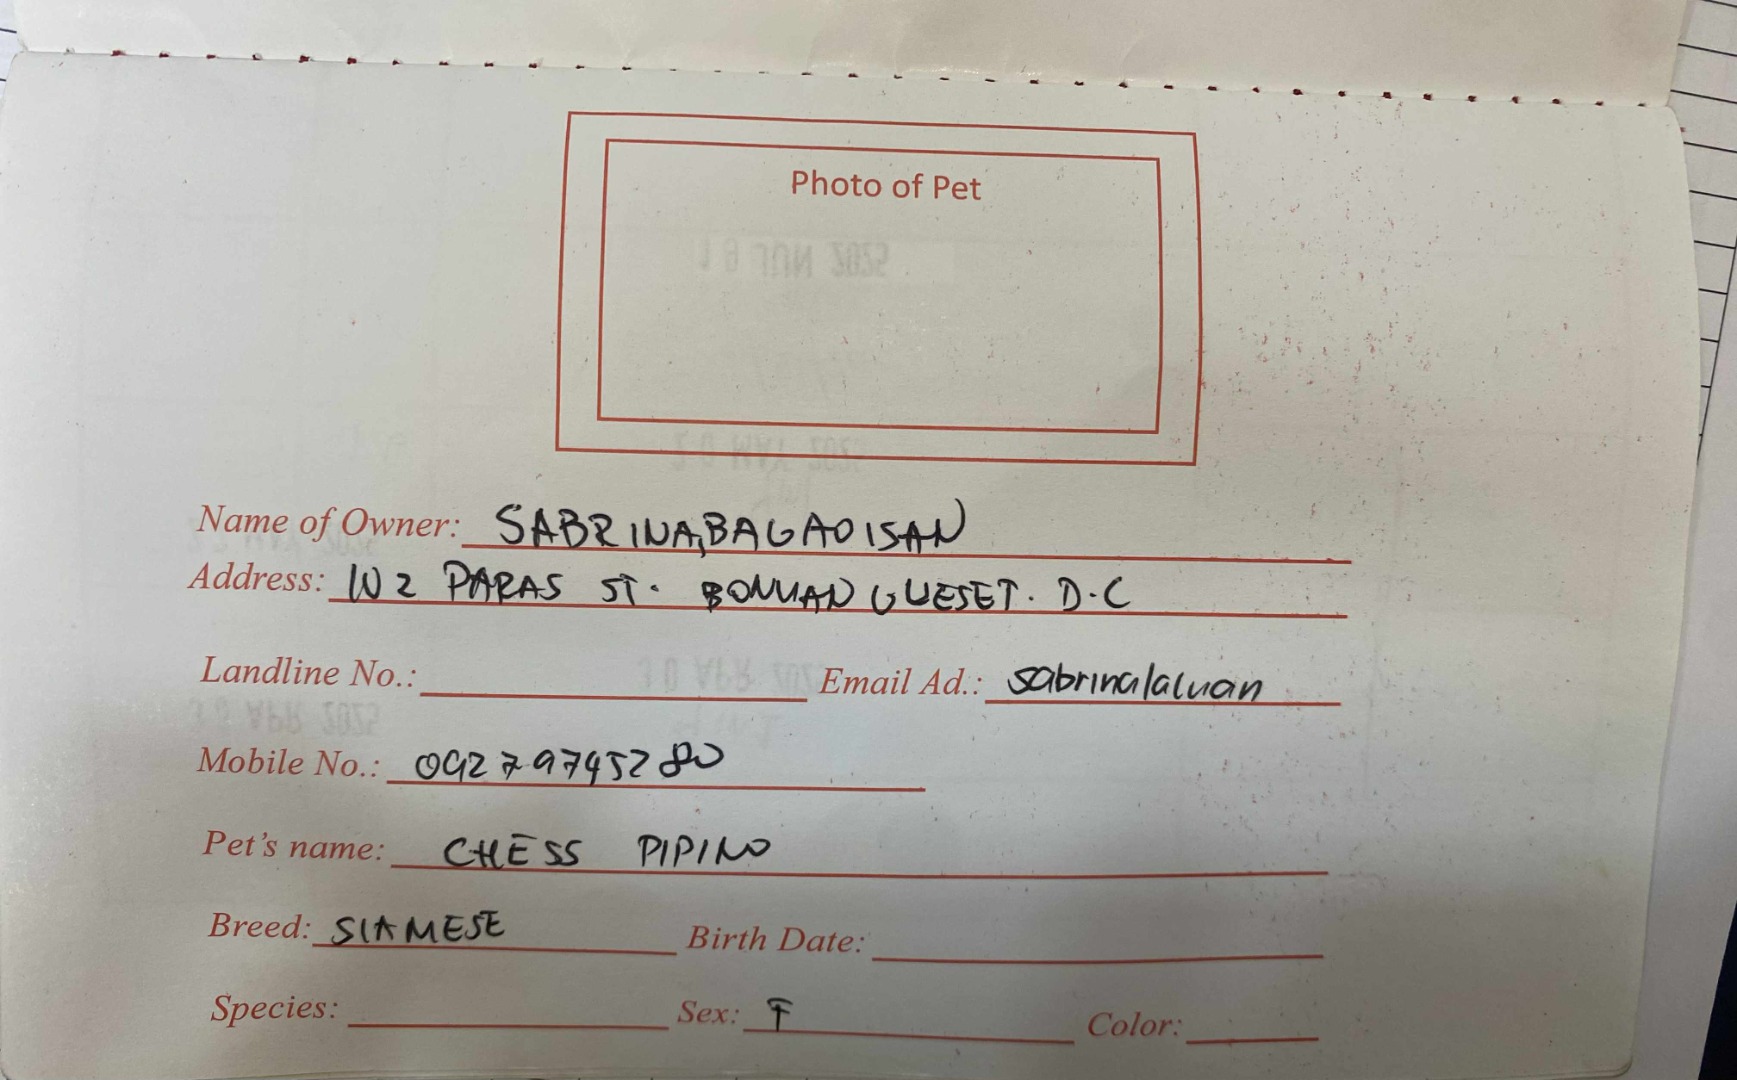 Photo of Pet
Name of Owner: SABRINA, BAGAOISAN
Address: 102 PARAS ST. BONUAN GUESET. D.C
Landline No.: Email Ad.: sabrinalaluan
Mobile No.: 09279745280
Pet's name: CHESS PIPINO
Breed: SIAMESE Birth Date:
Species: Sex: F Color: